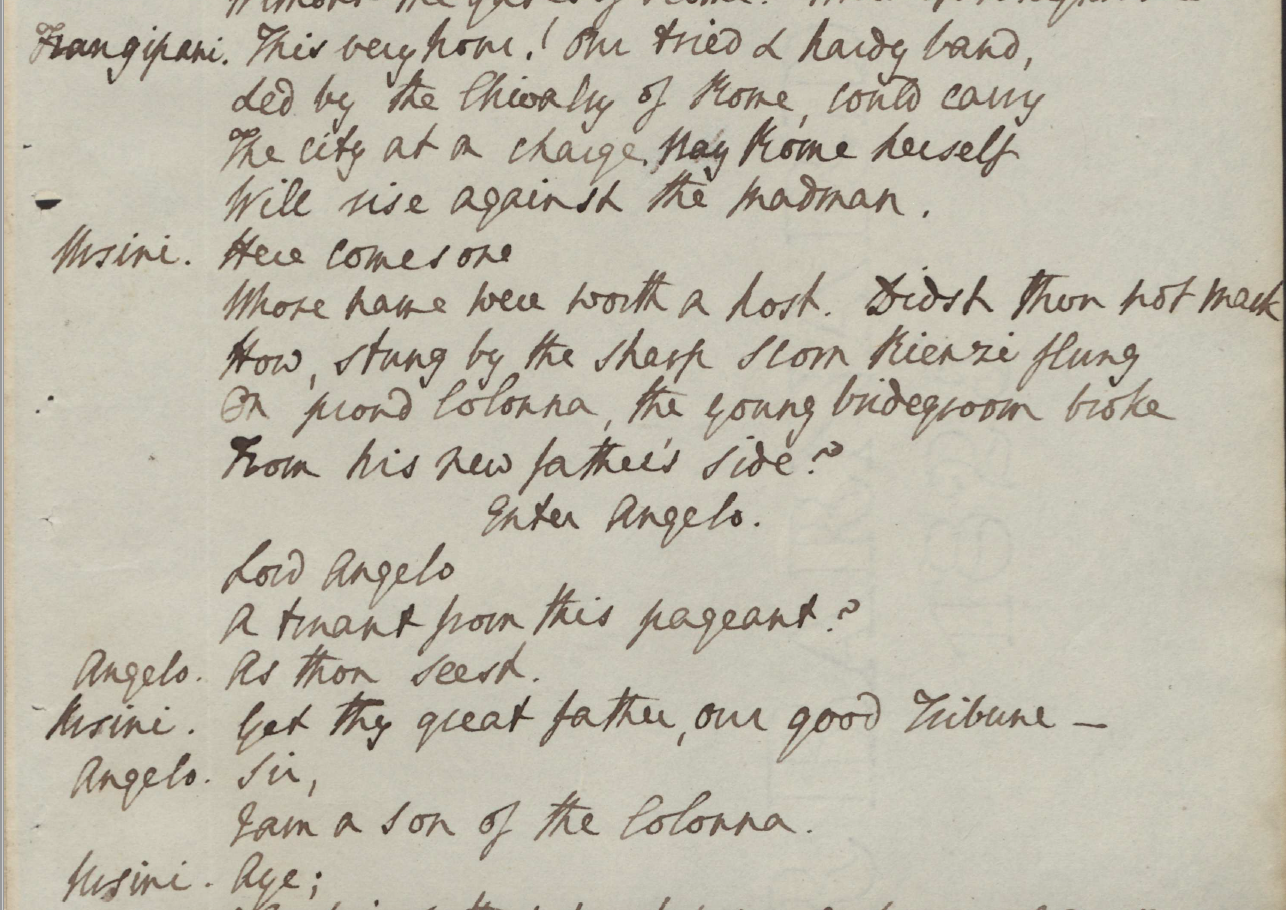 without the gates of Rome.
Frangipani. This very hour! Our tried & hardy band,
Led by the Chivalry of Rome, could carry
The city at a charge. Nay Rome herself
Will rise against the madman.
Ursini. Here comes one
Whose name were worth a host. Didst thou not mark
How, stung by the sharp scorn Rienzi flung
On proud Colonna, the young bridegroom broke
From his new father's side?
Enter Angelo.
Lord Angelo
A truant from this pageant?
Angelo. As thou seest.
Ursini. Yet thy great father, our good Tribune —
Angelo. Sir,
I am a son of the Colonna.
Ursini. Aye;